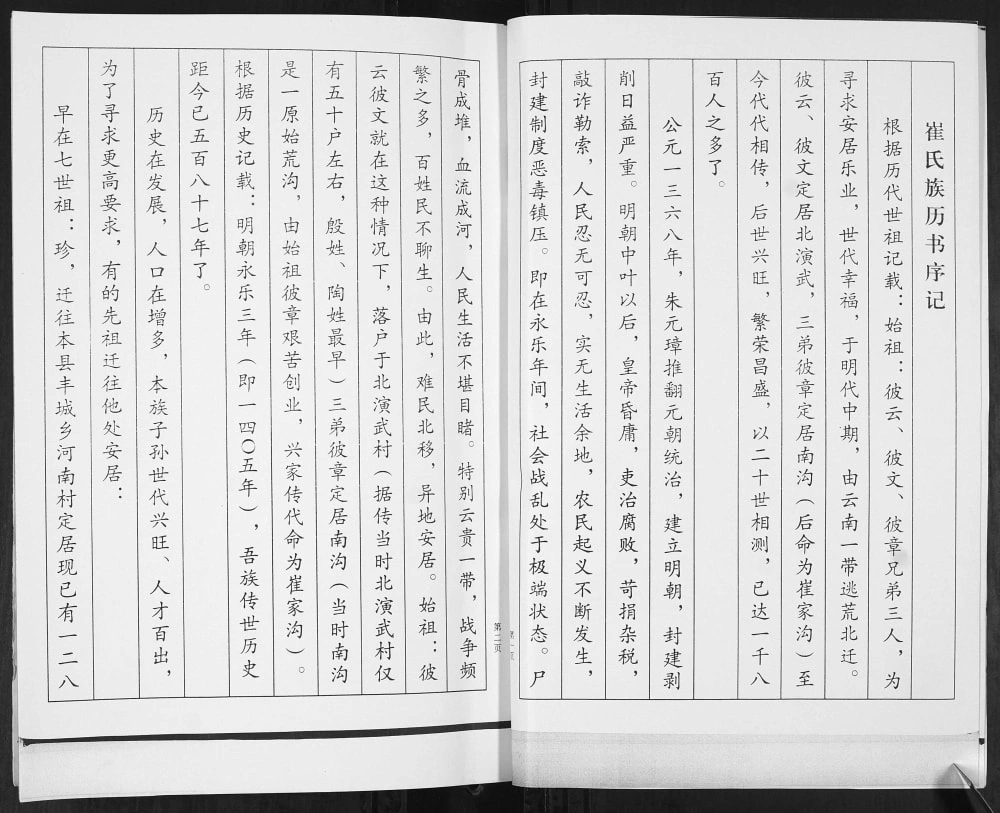 崔氏族历书序记
根据历代世祖记载：始祖：彼云、彼文、彼章兄弟三人，为
寻求安居乐业，世代幸福，于明代中期，由云南一带逃荒北迁。
彼云、彼文定居北演武，三弟彼章定居南沟（后命为崔家沟）至
今代代相传，后世兴旺，繁荣昌盛，以二十世相测，已达一千八
百人之多了。
公元一三六八年，朱元璋推翻元朝统治，建立明朝，封建剥
削日益严重。明朝中叶以后，皇帝昏庸，吏治腐败，苛捐杂税，
敲诈勒索，人民忍无可忍，实无生活余地，农民起义不断发生，
封建制度恶毒镇压。即在永乐年间，社会战乱处于极端状态。尸
第一页
骨成堆，血流成河，人民生活不堪目睹。特别云贵一带，战争频
繁之多，百姓民不聊生。由此，难民北移，异地安居。始祖：彼
云彼文就在这种情况下，落户于北演武村（据传当时北演武村仅
有五十户左右，殷姓、陶姓最早）三弟彼章定居南沟（当时南沟
是一原始荒沟，由始祖彼章艰苦创业，兴家传代命为崔家沟）。
根据历史记载：明朝永乐三年（即一四〇五年），吾族传世历史
距今已五百八十七年了。
历史在发展，人口在增多，本族子孙世代兴旺、人才百出，
为了寻求更高要求，有的先祖迁往他处安居：
早在七世祖：珍，迁往本县丰城乡河南村定居现已有一二八
第二页